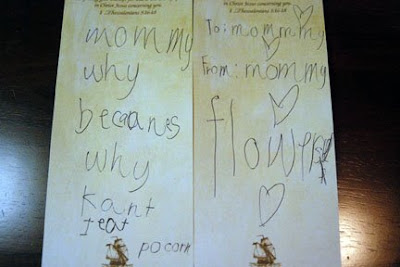 in Christ Jesus concerning you
1 Thessalonians 5:16-18
mommy
why
becaanes
why
kant
I eat
pocorn
in Christ Jesus concerning you
1 Thessalonians 5:16-18
To: mommy
From: mommy
flowers